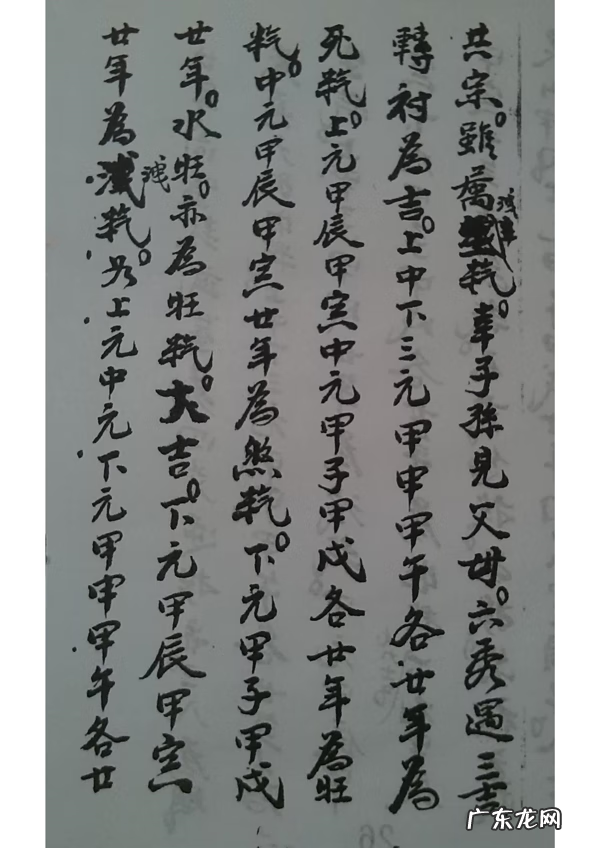 共宗。雖氣。幸子孫見父母。六秀遇三吉
轉衬為吉。上中下三元甲申甲午各廿年為
死氣。上元甲辰甲寅中元甲子甲戌各廿年為旺
氣。中元甲辰甲寅廿年為煞氣。下元甲子甲戌
廿年。水旺。亦為旺氣。大吉。下元甲辰甲寅
廿年為氣。如上元中元下元甲申甲午各廿
广东龙网